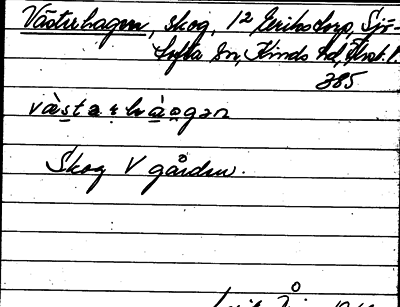 Västerhagen, skog, 12 Eriksdorp, Sjö-
tofta sn, Kinds hd, Älvsb. l.
385
vàstarhàogan
Skog V gården.